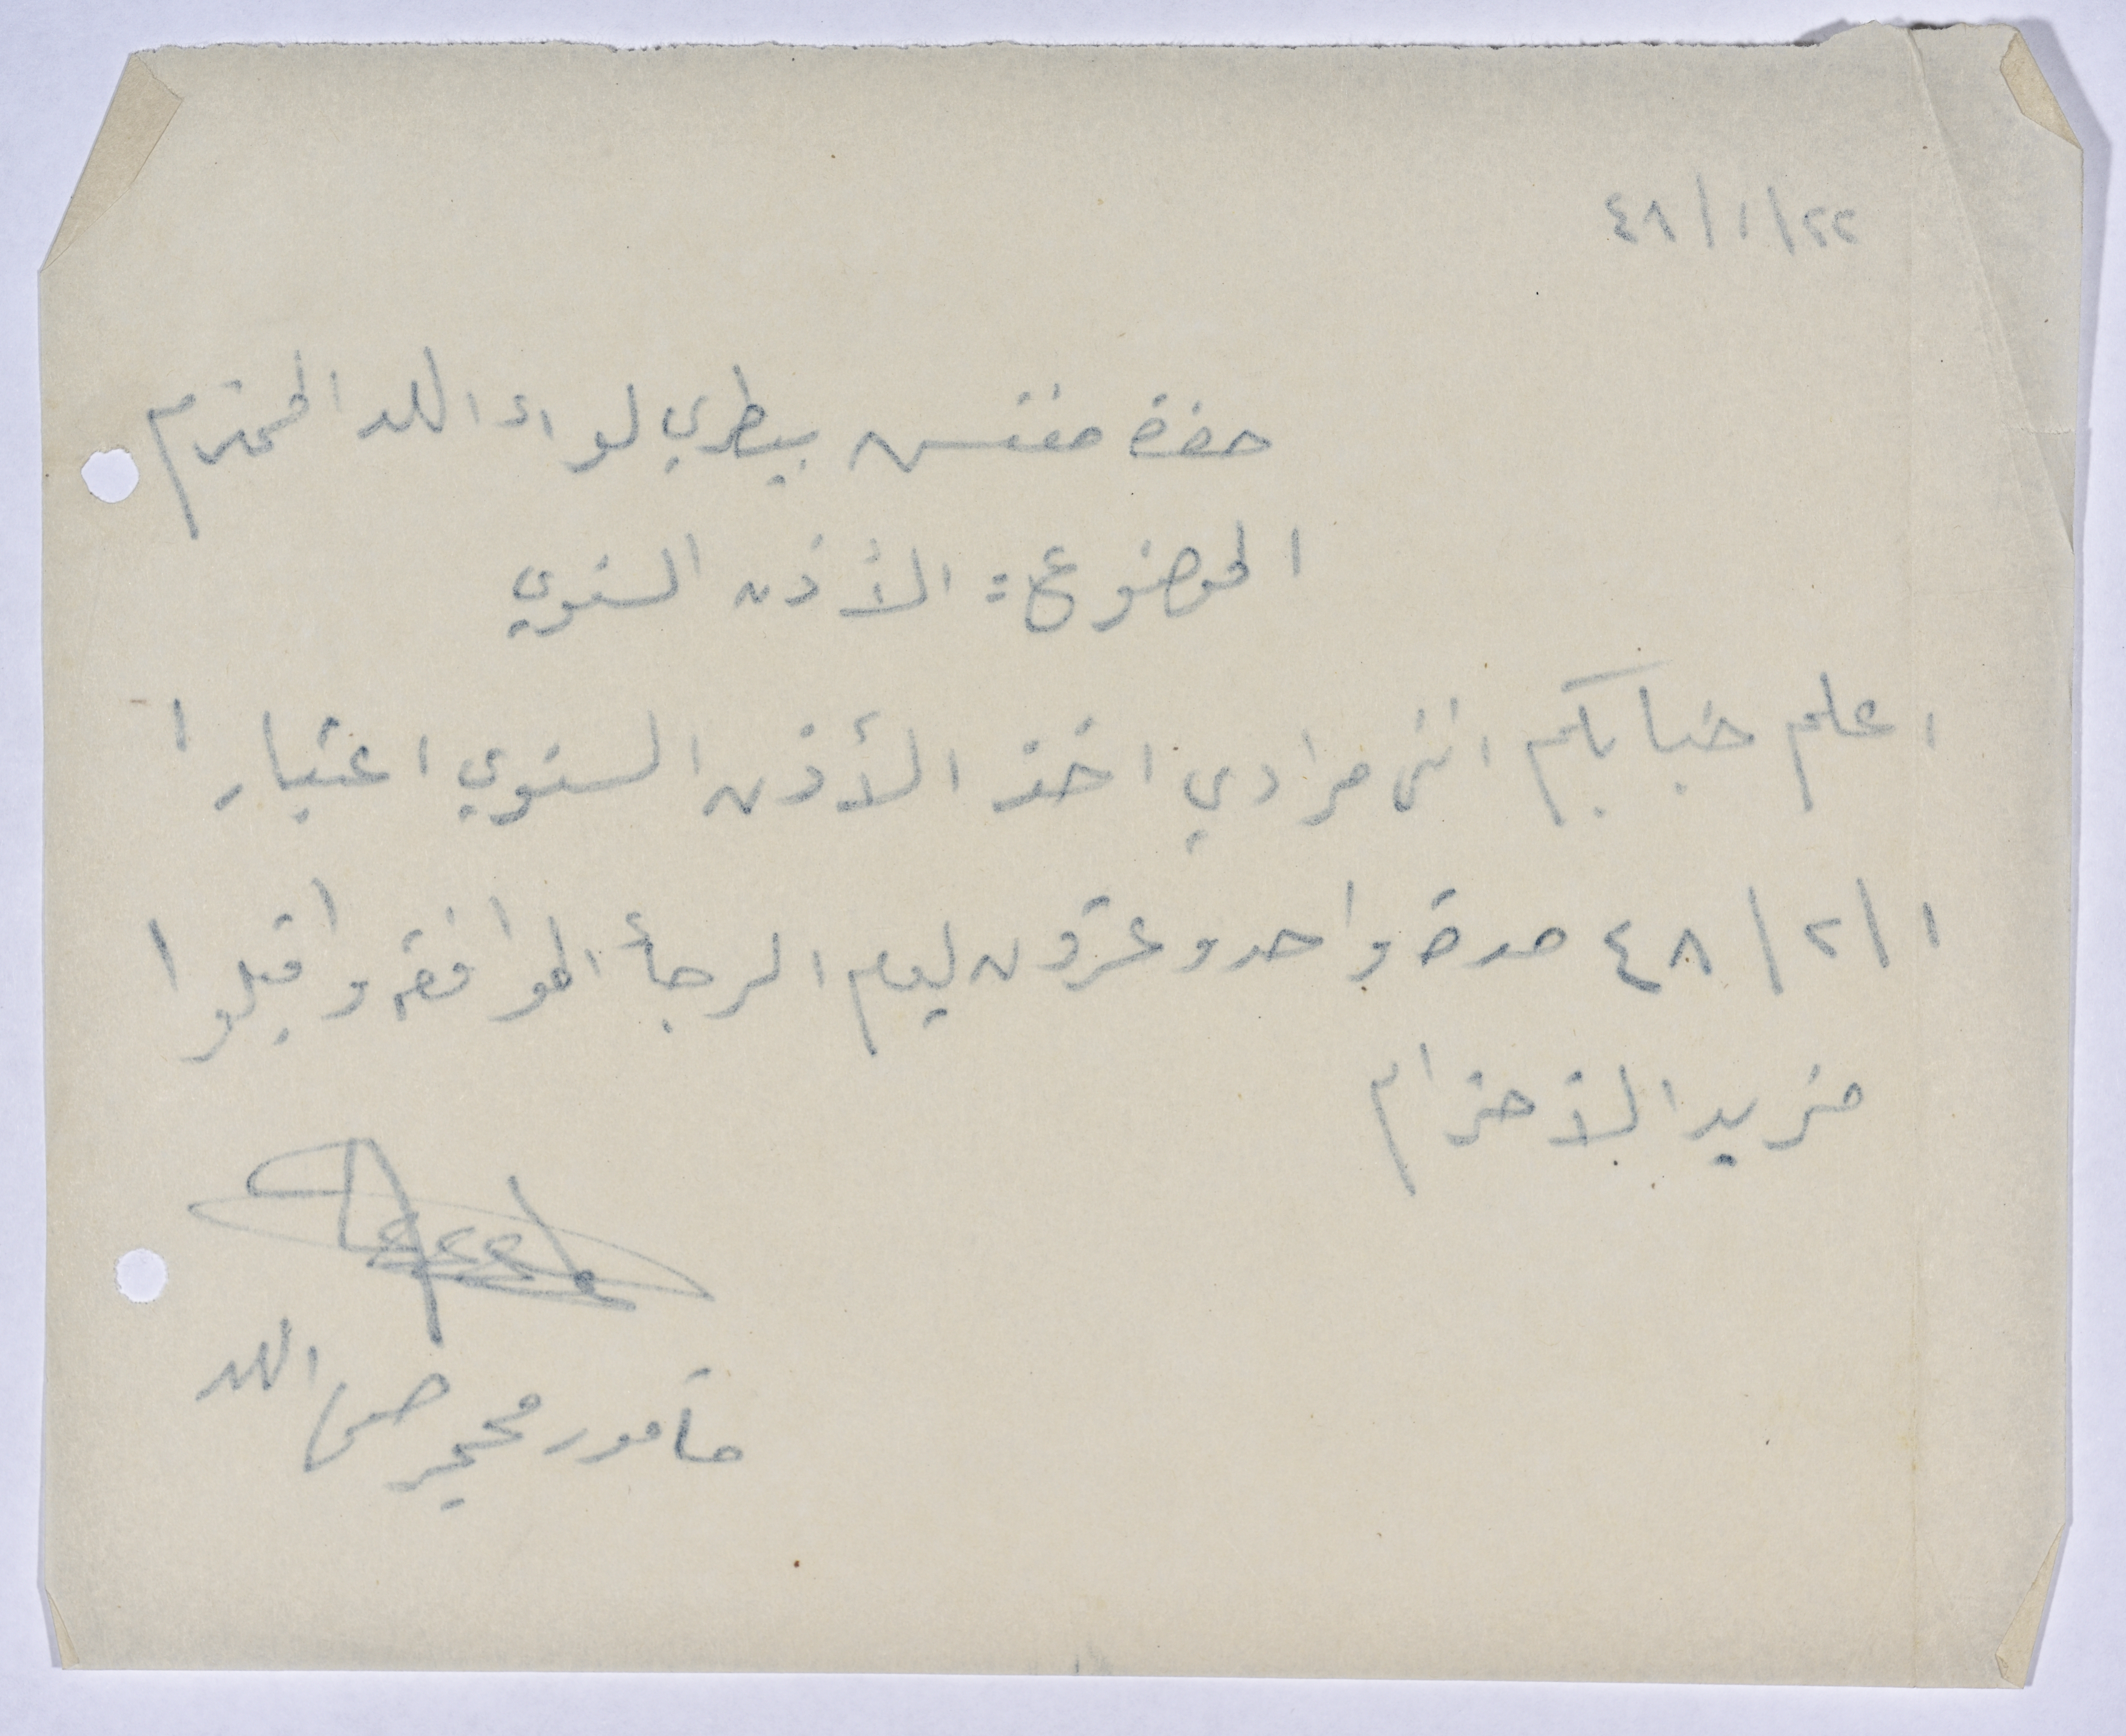 ٤٨/١/٢٢
حضرة مفتش بيطري لواء اللد المحترم
الموضوع: الأذن السنوي
اعلم جنابكم انني مرادي اخذ الأذن السنوي اعتبارا
٤٨/٢/١ مدة واحد وعشرون ليوم الرجأ الموافقه واقبلوا
مزيد الأحترام
مأمور محجر صحي اللد